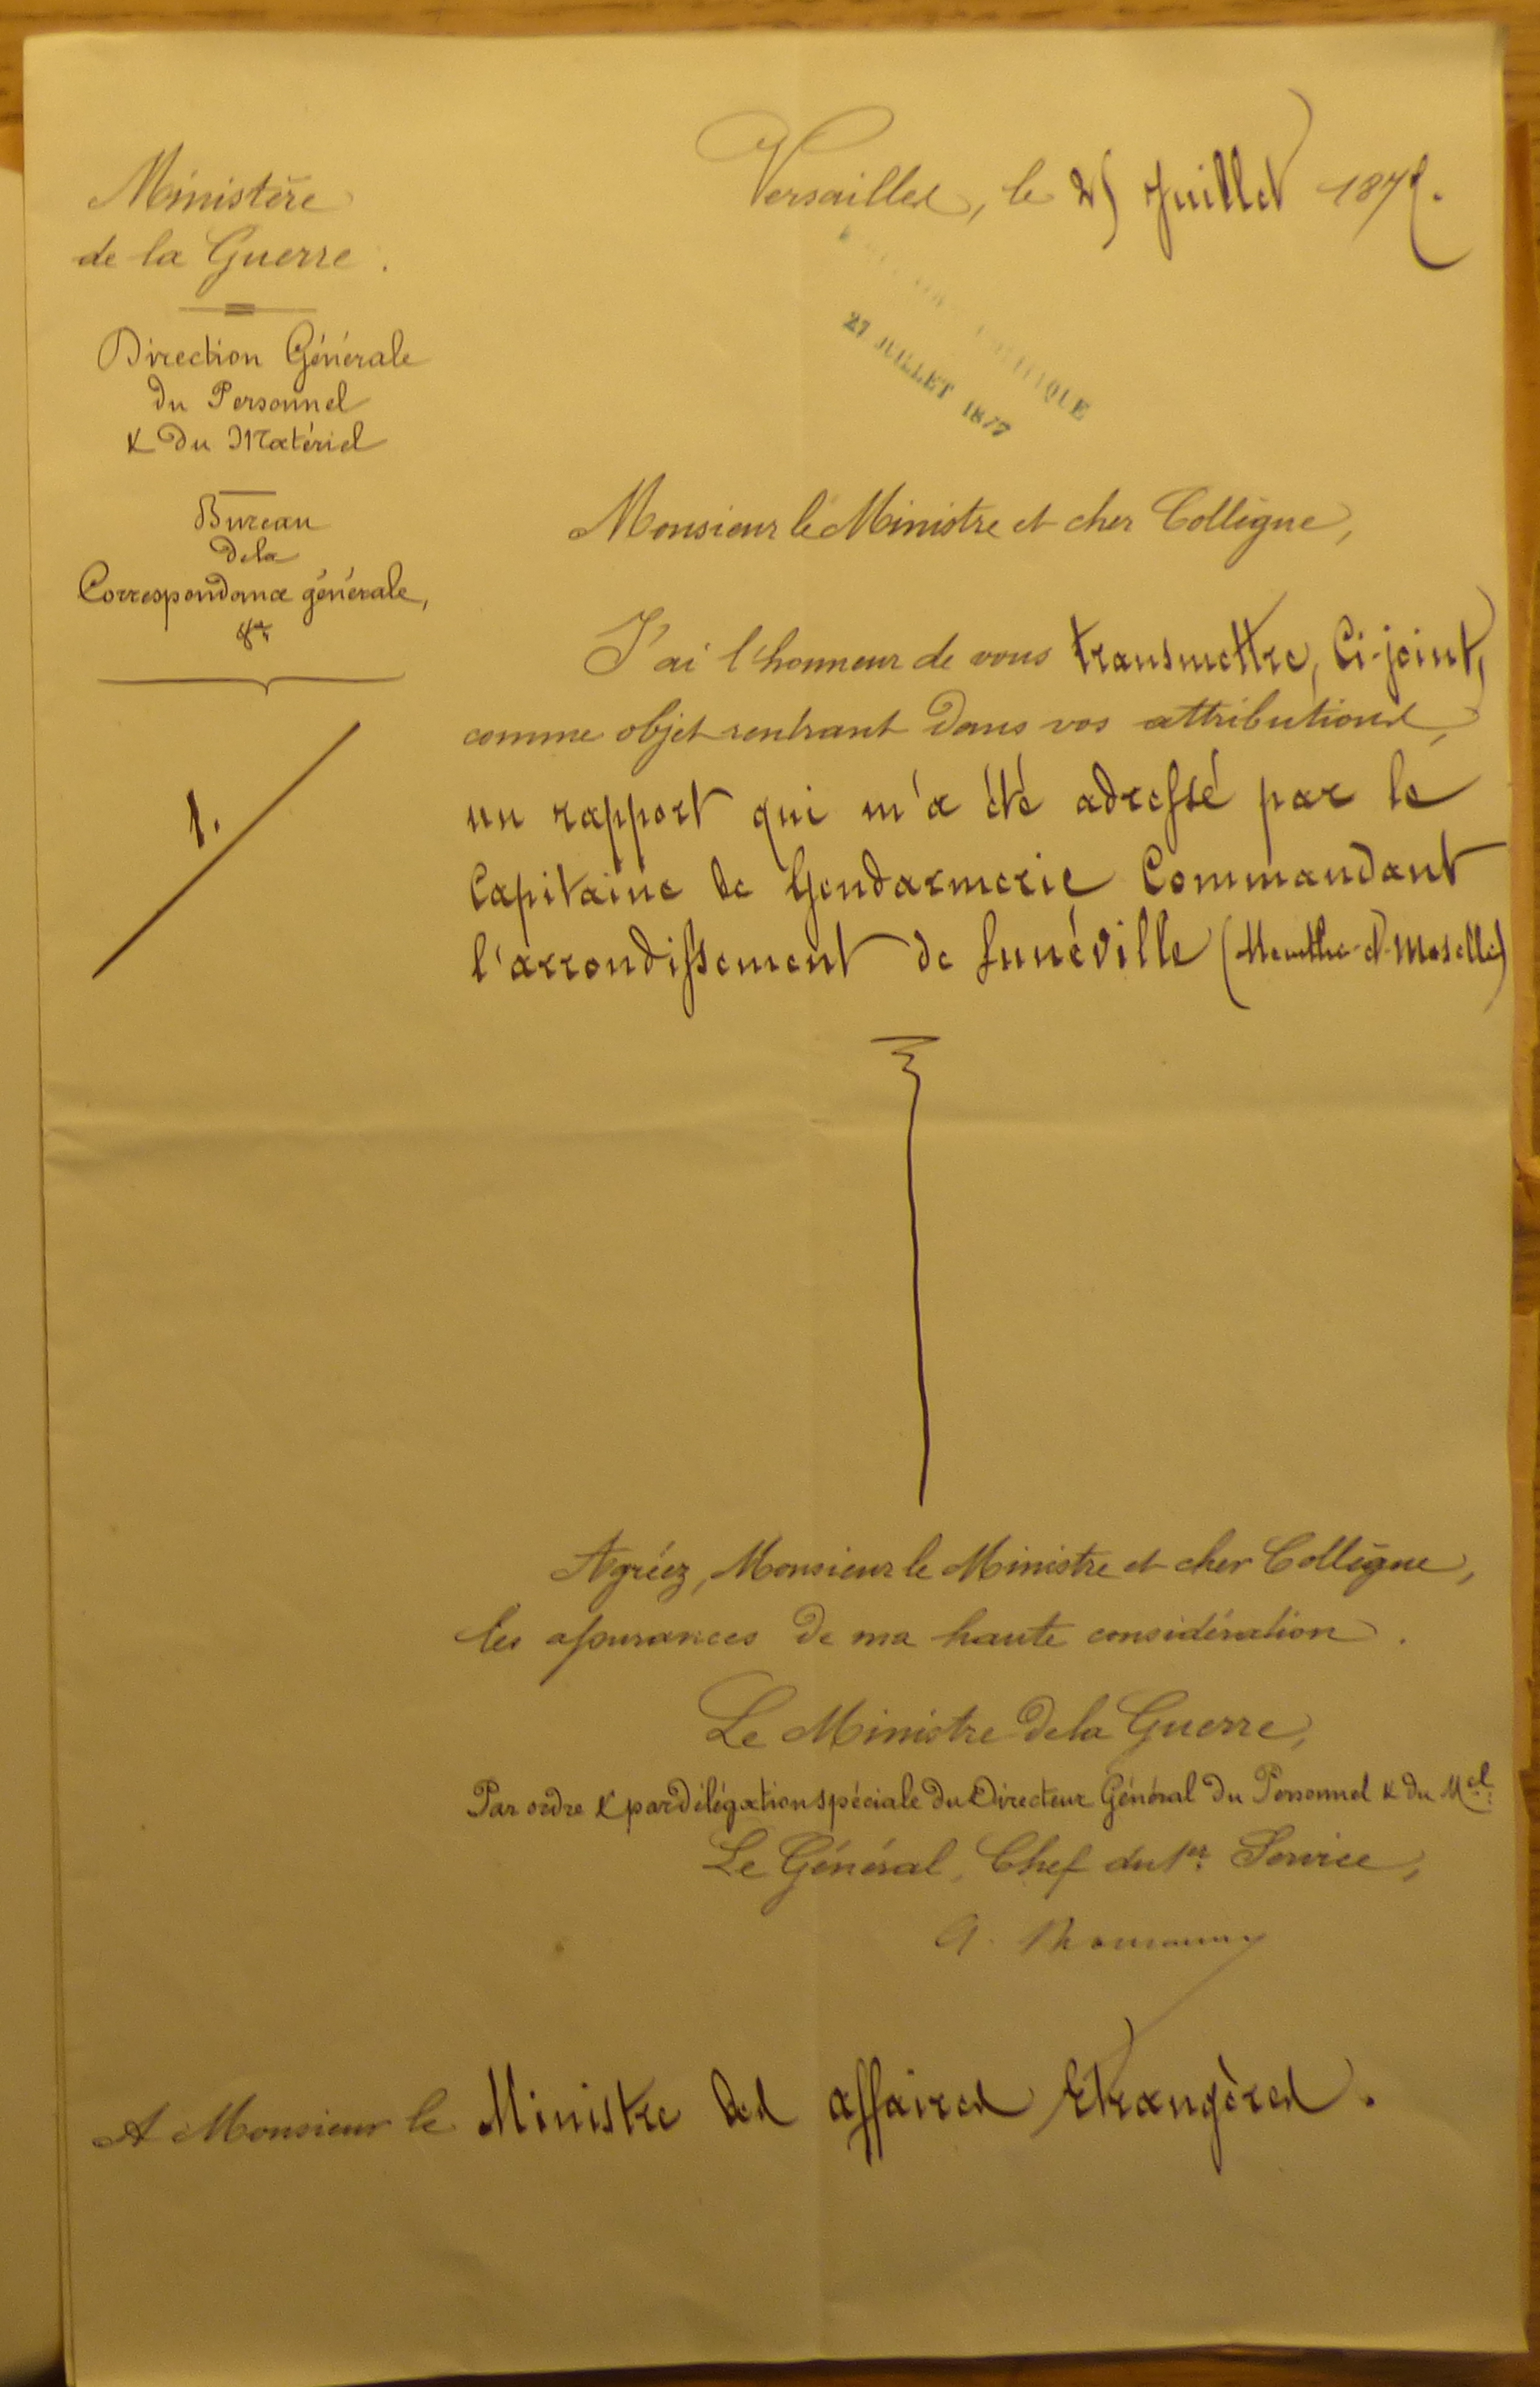 Ministère
de la Guerre.
Direction Générale
du Personnel
& du Matériel
Bureau
de la
Correspondance générale,
1.
Versailles, le 25 Juillet 1877.
27 JUILLET 1877
Monsieur le Ministre et cher Collègue,
J'ai l'honneur de vous transmettre, Ci-joint,
comme objet rentrant dans vos attributions,
un rapport qui m'a été adressé par le
Capitaine de Gendarmerie Commandant
l'arrondissement de Lunéville (Meurthe-et-Moselle)
Agréez, Monsieur le Ministre et cher Collègue,
les assurances de ma haute considération.
Le Ministre de la Guerre,
Par ordre & par délégation spéciale du Directeur Général du Personnel & du Mel:
Le Général, Chef du 1er Service,
A Monsieur le Ministre des affaires Etrangères.